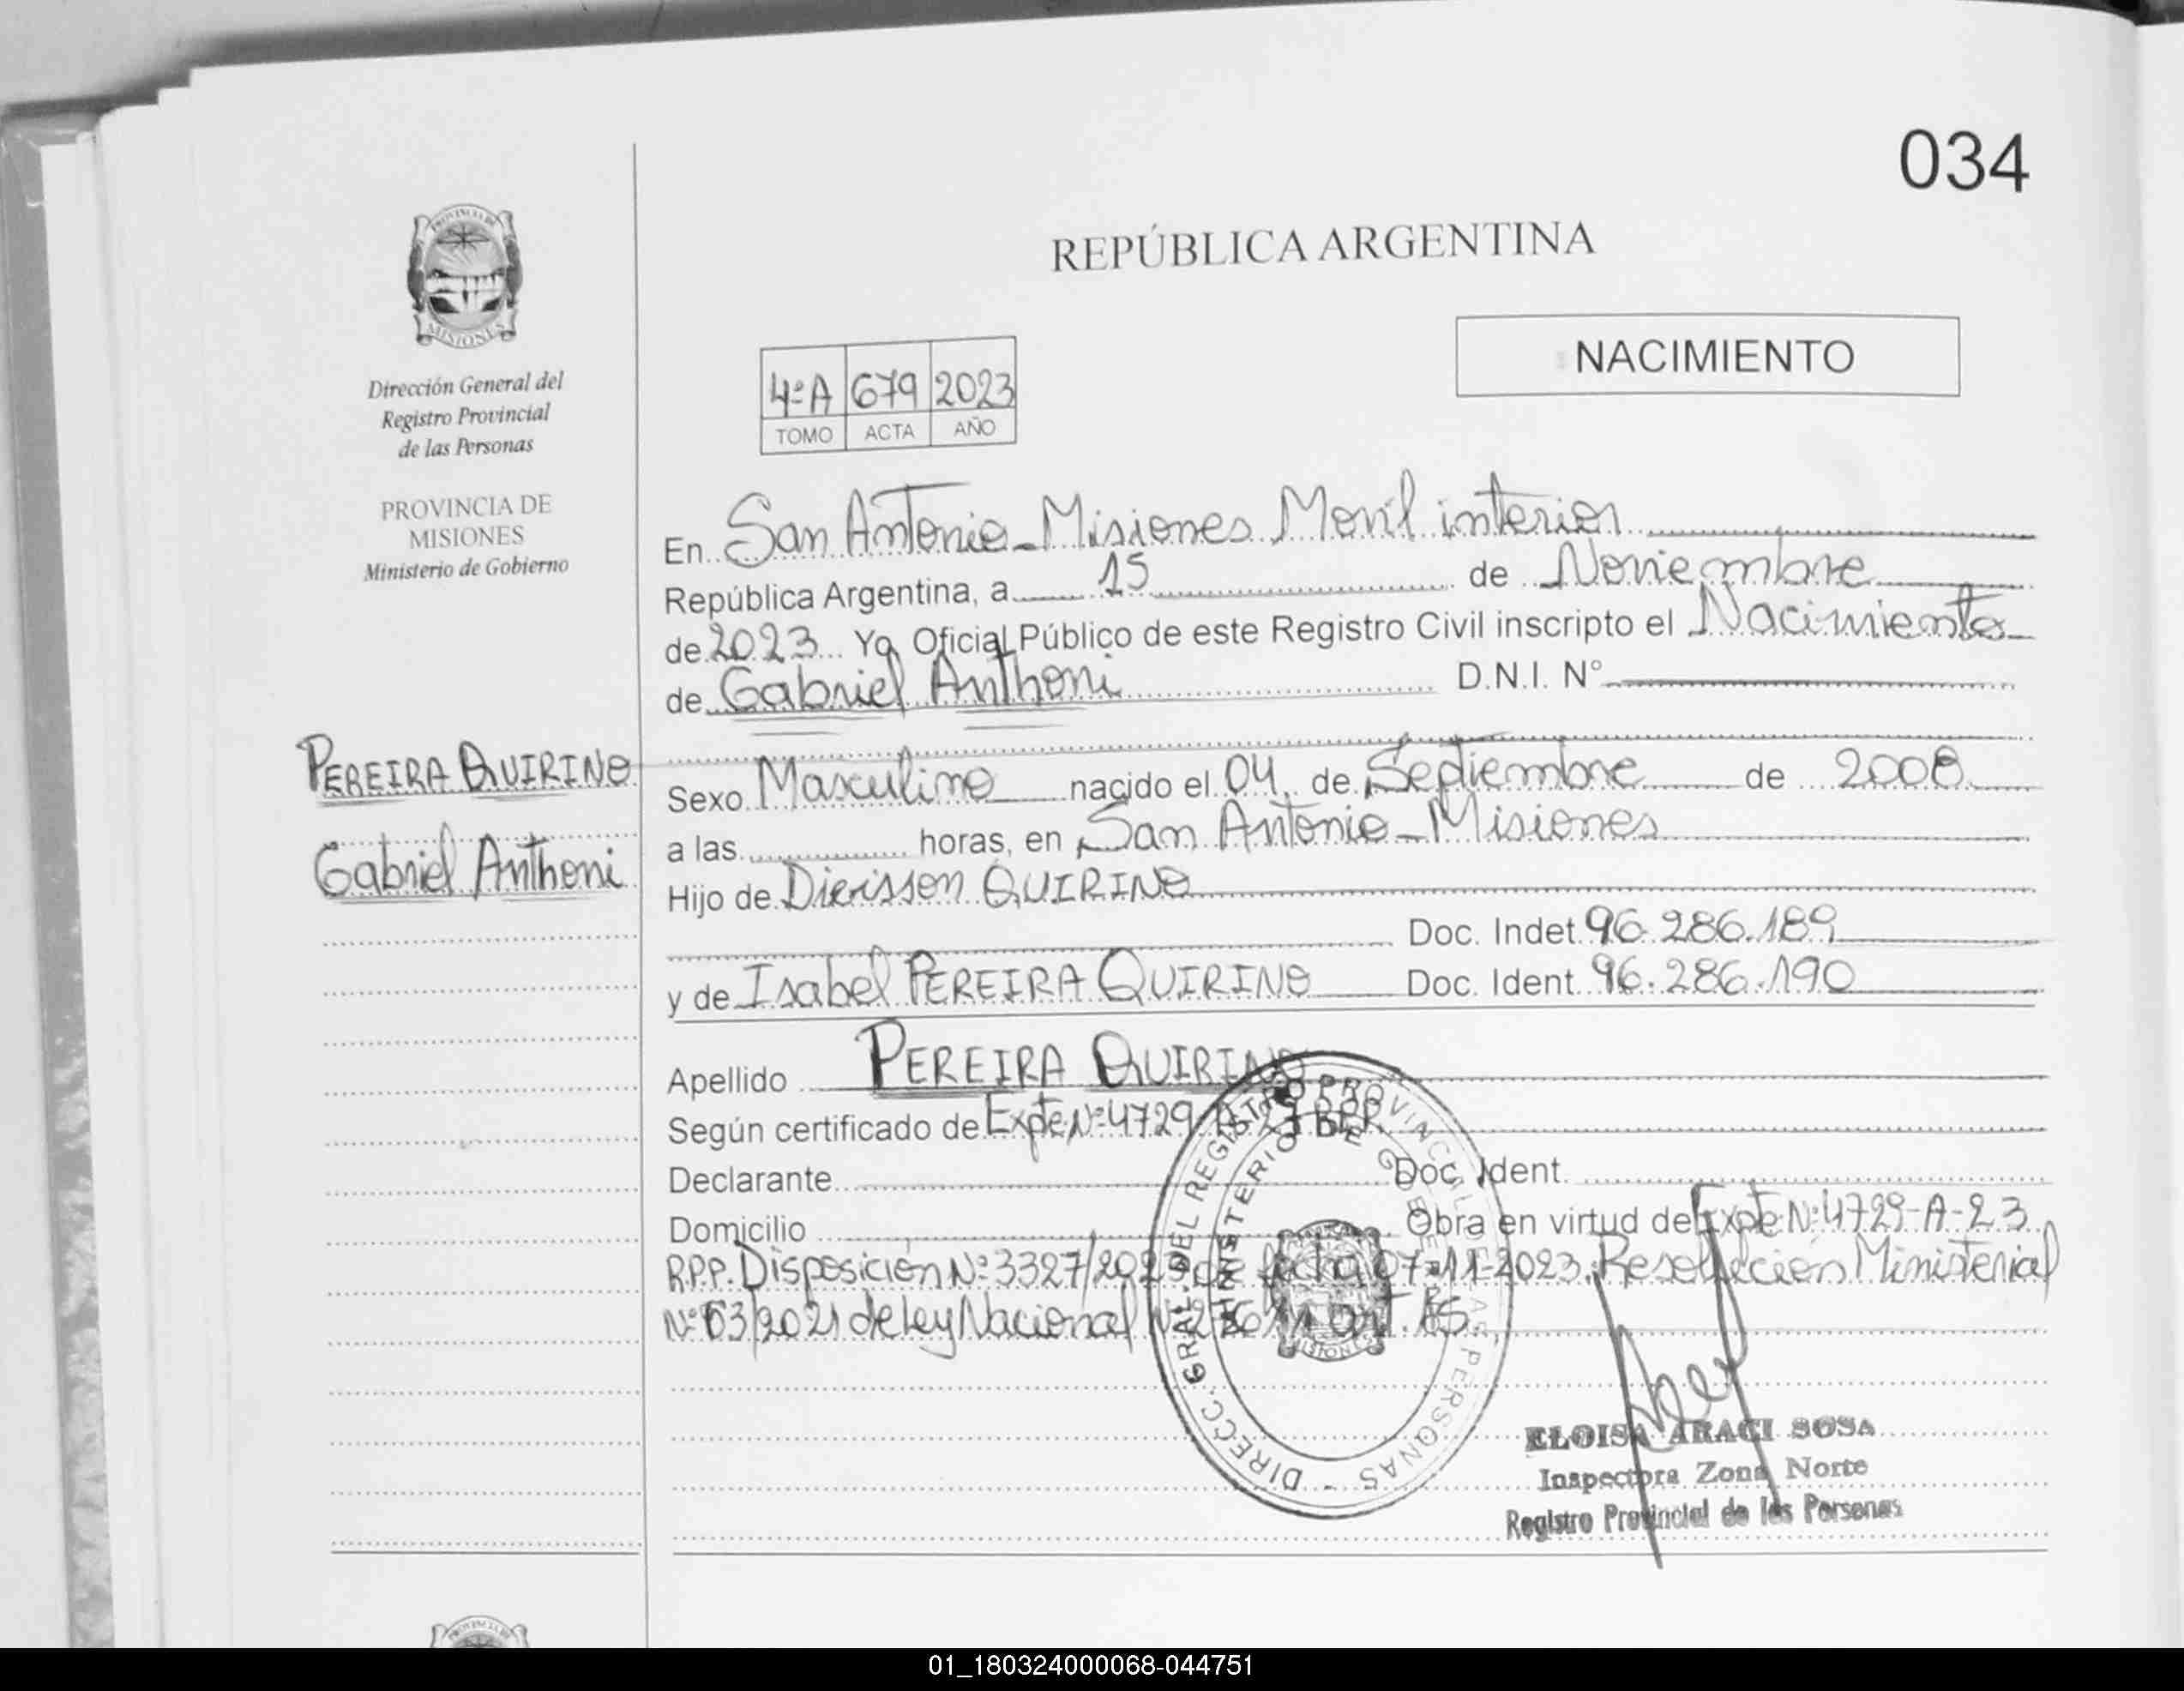 034
REPÚBLICA ARGENTINA
NACIMIENTO
PROVINCIA DE
MISIONES
Dirección General del
Registro Provincial
de las Personas
PROVINCIA DE
MISIONES
Ministerio de Gobierno
4ºA 679 2023
TOMO ACTA AÑO
En San Antonio - Misiones Movil interior
República Argentina, a 15 de Noviembre
de 2023 Yo Oficial Público de este Registro Civil inscripto el Nacimiento
de Gabriel Anthoni D.N.I. Nº
PEREIRA QUIRINO
Gabriel Anthoni
Sexo Masculino nacido el 04 de Septiembre de 2008
a las horas, en San Antonio - Misiones
Hijo de Dierisson QUIRINO
Doc. Indet. 96.286.189
y de Isabel PEREIRA QUIRINO Doc. Ident. 96.286.190
Apellido PEREIRA QUIRINO
Según certificado de Expte Nº 4729-A-23 RPP.
Declarante Doc. Ident.
Domicilio Obra en virtud del Expte Nº 4729-A-23
R.P.P. Disposición Nº 3327/2023 de fecha 07-11-2023. Resolución Ministerial
Nº 63/2021 de ley Nacional Art. 15.
DIRECC. GRAL. DEL REGISTRO PROVINCIAL DE LAS PERSONAS -
MINISTERIO DE GOBIERNO
MISIONES
ELOISA ARACI SOSA
Inspectora Zona Norte
Registro Provincial de las Personas
01_180324000068-044751